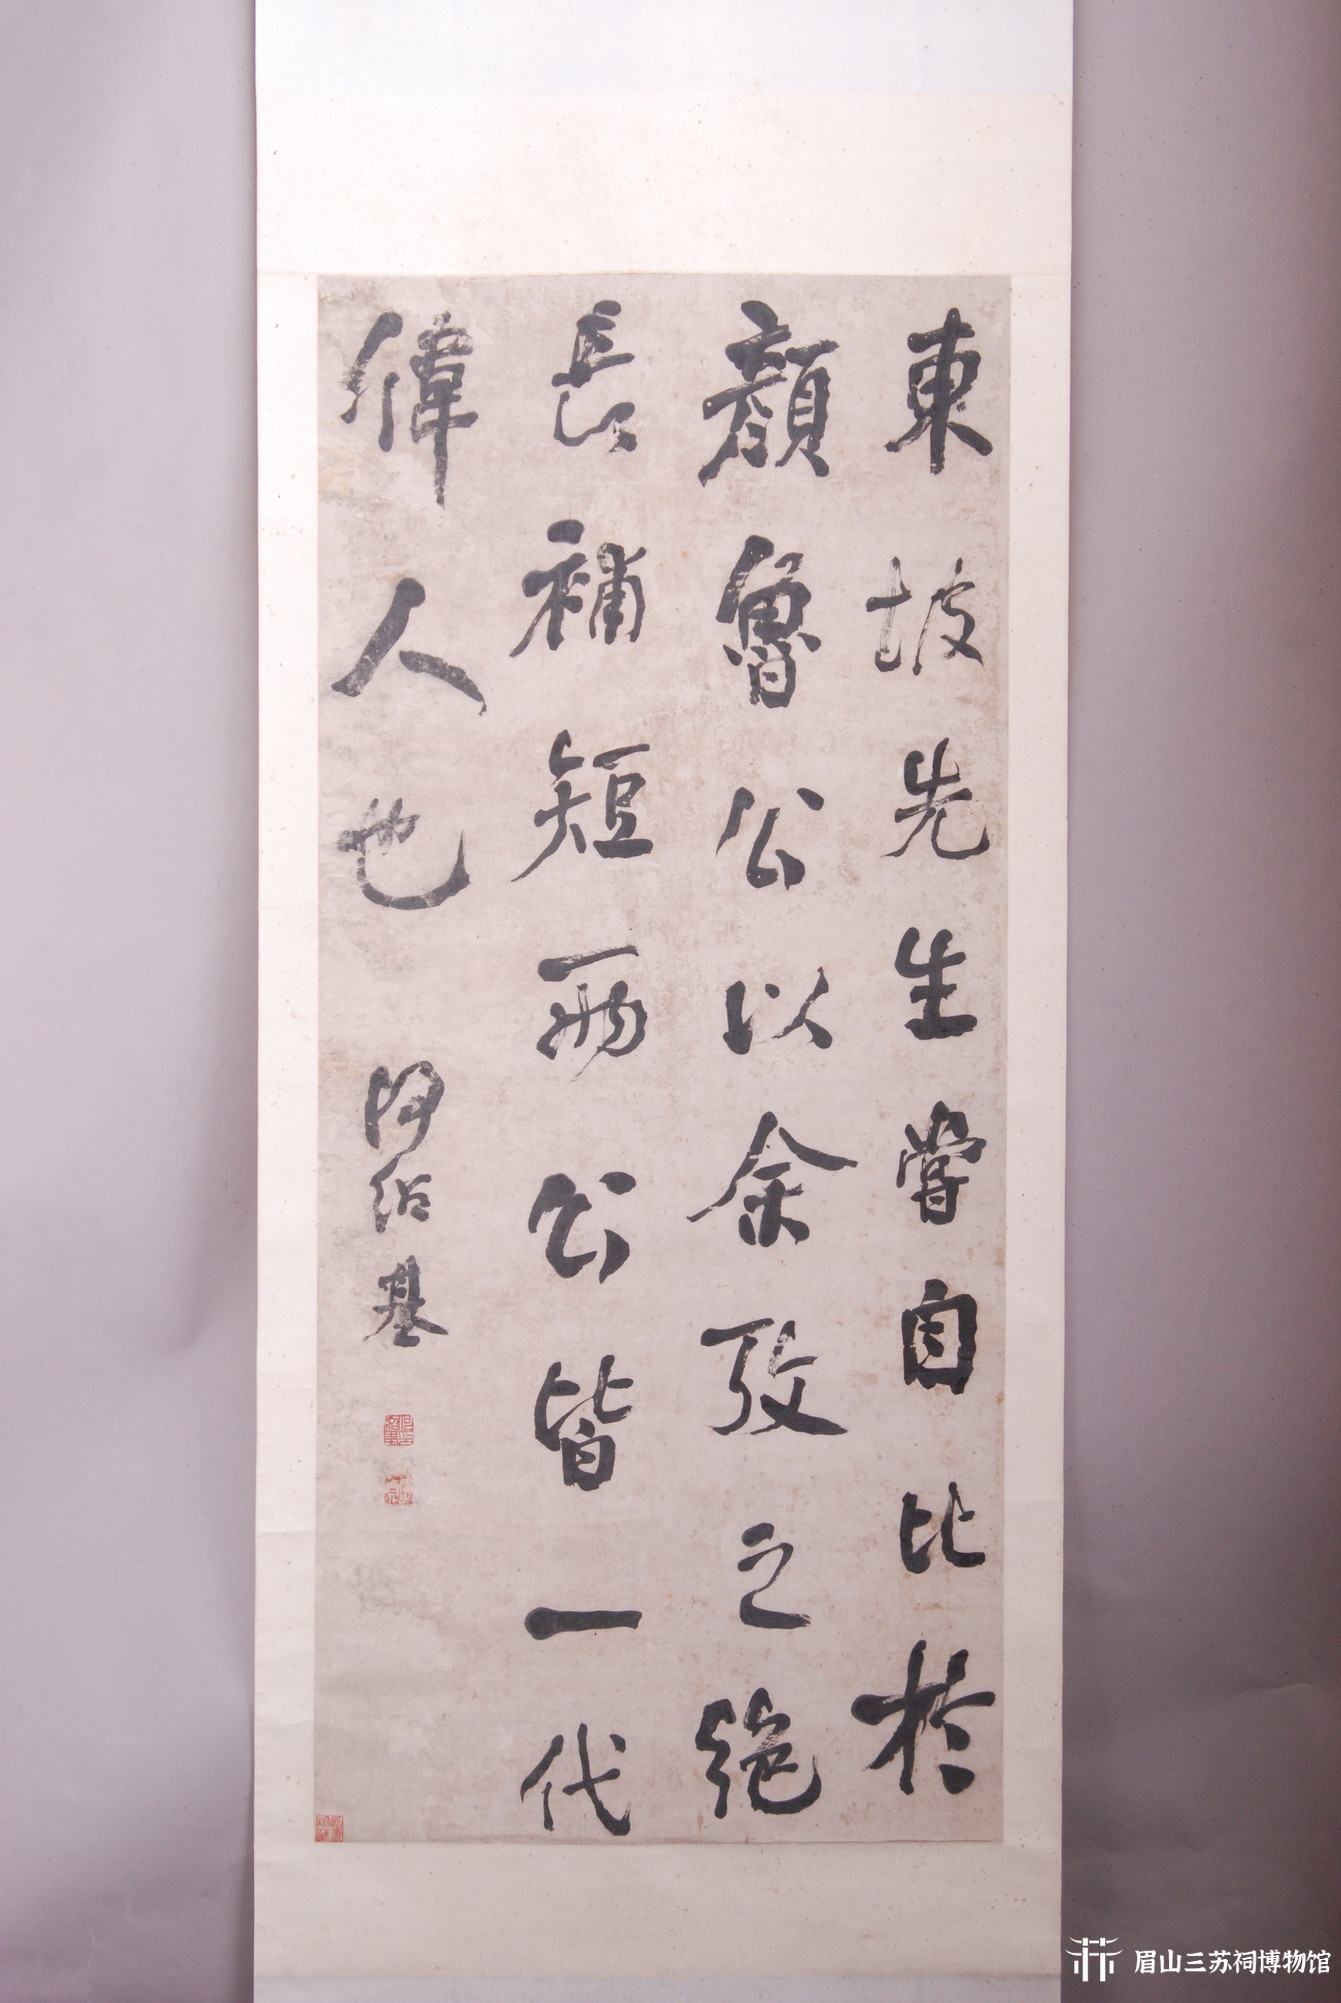 東坡先生嘗自比於
顏魯公以余攷之絶
長補短兩公皆一代
偉人也
何紹基
眉山三苏祠博物馆